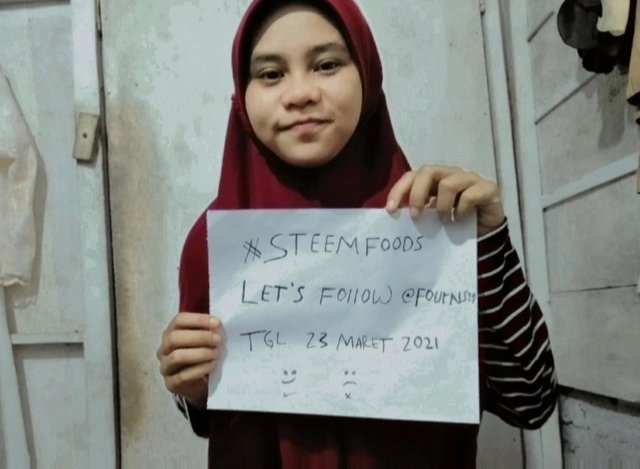 #STEEMFOODS
LET'S FOllOW
TGL 23 MARET 2021